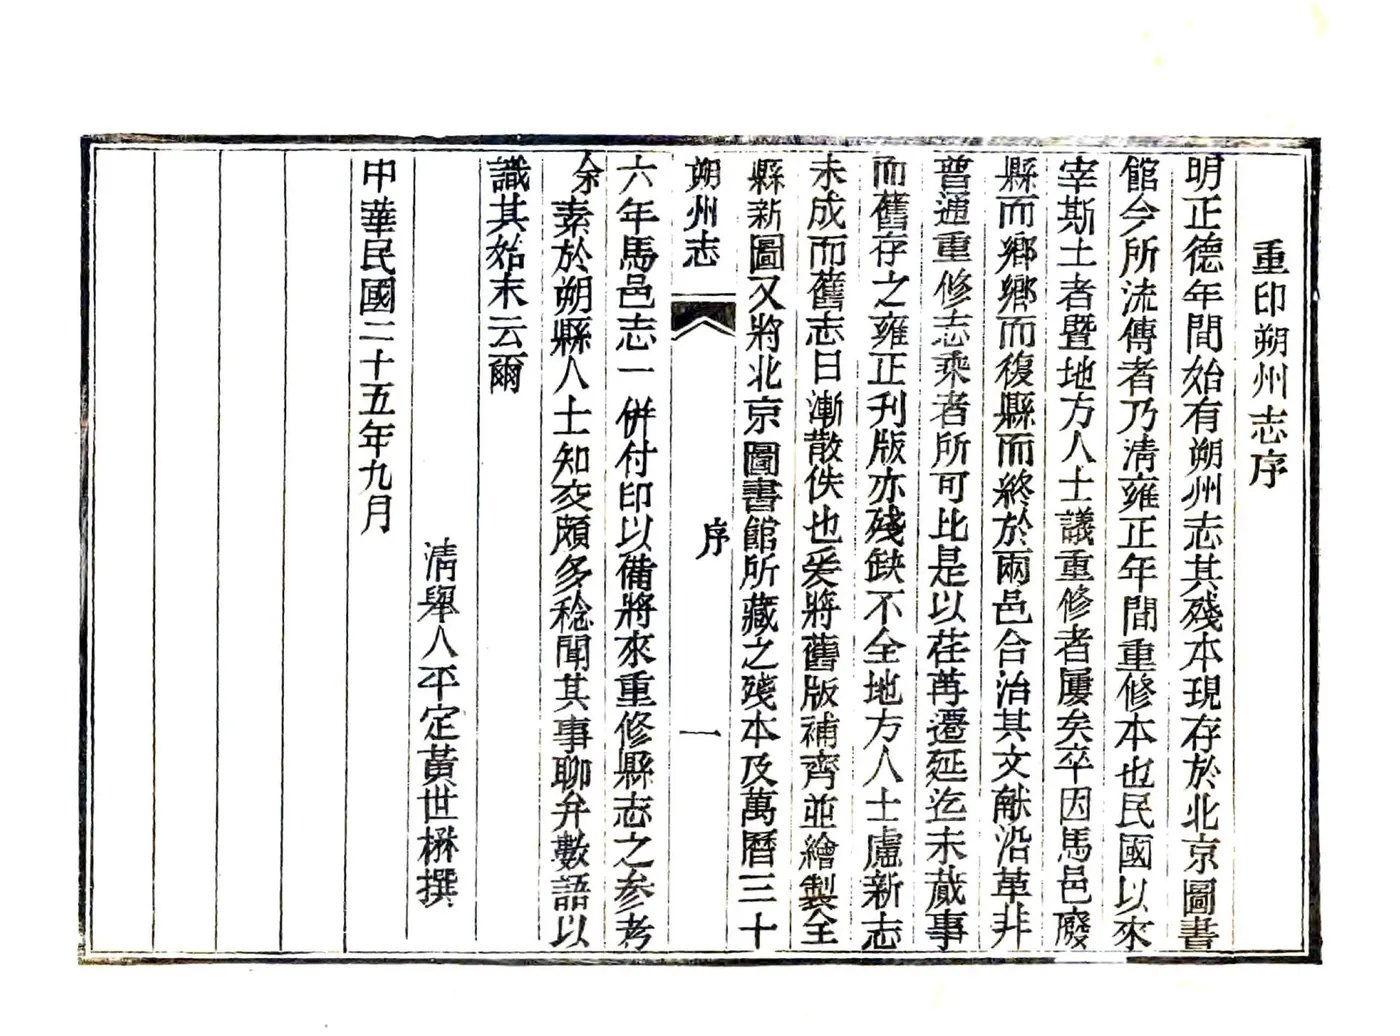 重印朔州志序
明正德年間始有朔州志其殘本現存於北京圖書
館今所流傳者乃清雍正年間重修本也民國以來
宰斯土者暨地方人士議重修者屢矣卒因馬邑廢
縣而鄉鄉而復縣而終於兩邑合治其文献沿革非
普通重修志乘者所可比是以荏苒遷延迄未蕆事
而舊存之雍正刋版亦殘缺不全地方人士慮新志
未成而舊志日漸散佚也爰將舊版補齊並繪製全
縣新圖又將北京圖書館所藏之殘本及萬曆三十
朔州志 序 一
六年馬邑志一併付印以備將來重修縣志之参考
余素於朔縣人士知交頗多稔聞其事聊弁數語以
識其始末云爾
清舉人平定黃世楙撰
中華民國二十五年九月